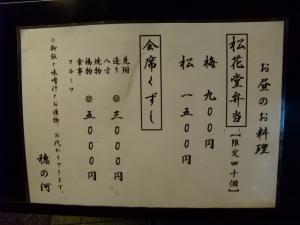 お昼のお料理
松花堂弁当【限定四十個】
梅 九〇〇円
松 一五〇〇円
会席くずし
先附
造り
八寸
焼物
揚物
食事
フルーツ
◎三〇〇〇円
◎五〇〇〇円
◎御飯と味噌汁とお漬物、お代わりできます。
穂の河